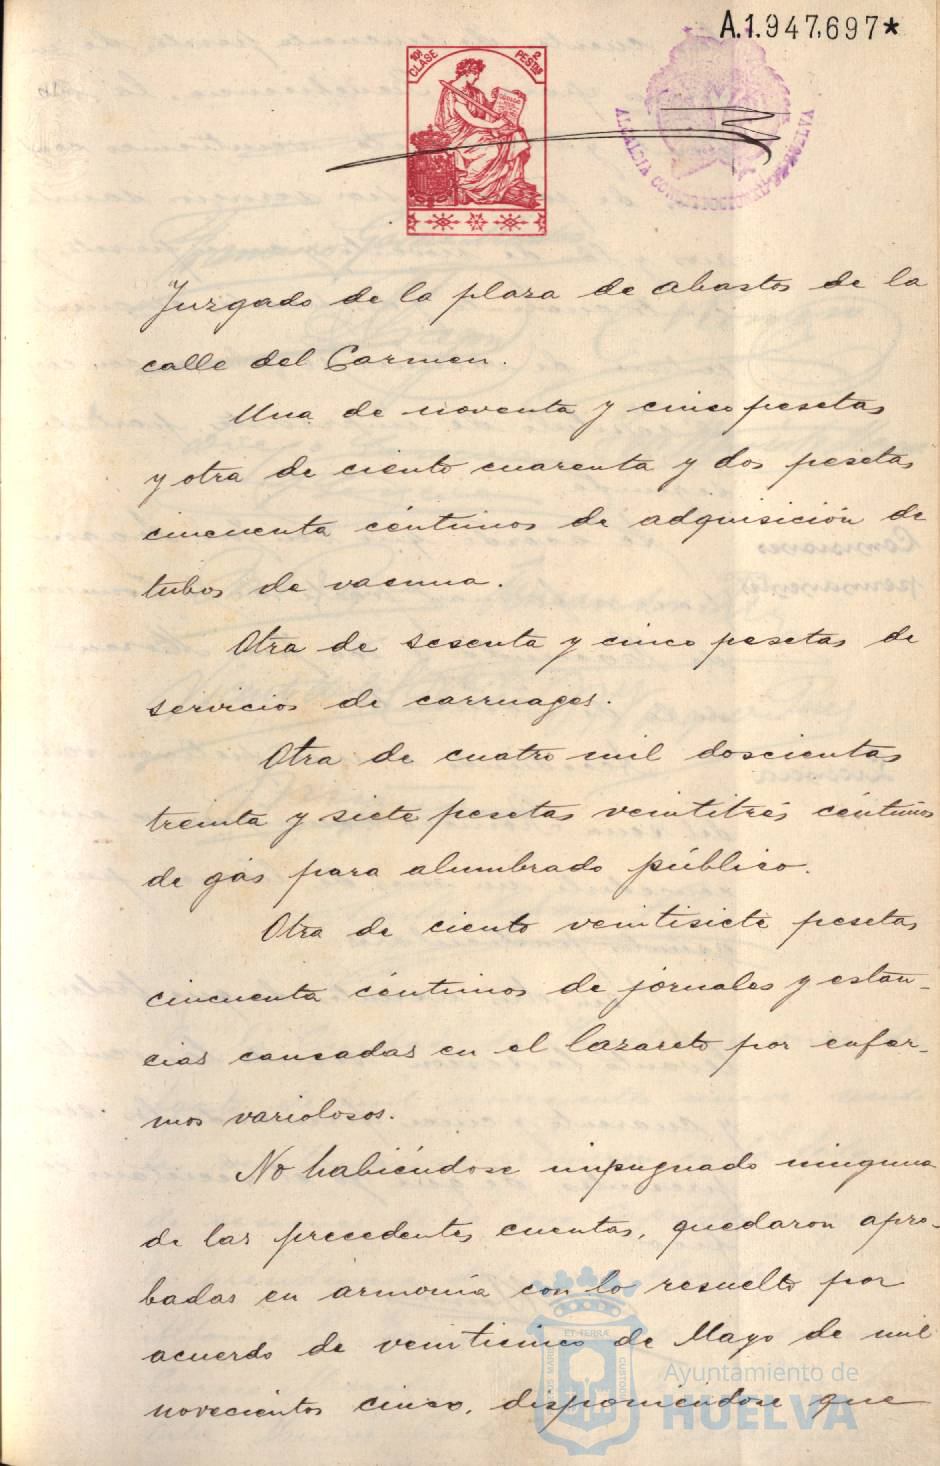 A.1.947.697*
10ª CLASE
2 PESTAS
ALCALDIA CONSTITUCIONAL DE HUELVA
Juzgado de la plaza de abastos de la
calle del Carmen.
Una de noventa y cinco pesetas
y otra de ciento cuarenta y dos pesetas
cincuenta céntimos de adquisición de
tubos de vacuna.
Otra de sesenta y cinco pesetas de
servicios de carruages.
Otra de cuatro mil doscientas
treinta y siete pesetas veintitrés céntimos
de gas para alumbrado público.
Otra de ciento veintisiete pesetas
cincuenta céntimos de jornales y estan-
cias causadas en el lazareto por enfer-
mos variolosos.
No habiéndose impugnado ninguna
de las precedentes cuentas, quedaron apro-
badas en armonía con lo resuelto por
acuerdo de veinticinco de Mayo de mil
novecientos cinco, disponiéndose que
ET TERRÆ
CUSTODIA
Ayuntamiento de
HUELVA